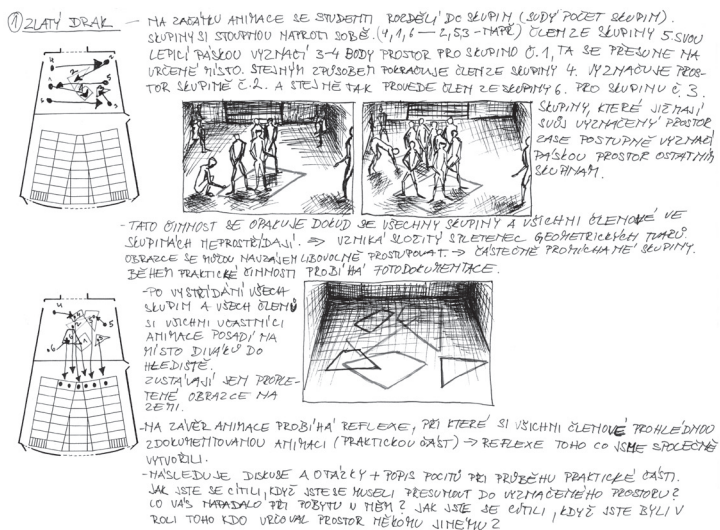 ① ZLATÝ DRAK – NA ZAČÁTKU ANIMACE SE STUDENTI ROZDĚLÍ DO SKUPIN (SUDÝ POČET SKUPIN).
SKUPINY SI STOUPNOU NAPROTI SOBĚ. (4,1,6 – 2,5,3 - NAPŘ.) ČLEN ZE SKUPINY 5 SVOU
LEPICÍ PÁSKOU VYZNAČÍ 3-4 BODY PROSTOR PRO SKUPINU Č.1, TA SE PŘESUNE NA
URČENÉ MÍSTO. STEJNÝM ZPŮSOBEM POKRAČUJE ČLEN ZE SKUPINY 4. VYZNAČUJE PROS-
TOR SKUPINĚ Č.2. A STEJNĚ TAK PROVEDE ČLEN ZE SKUPINY 6. PRO SKUPINU Č. 3.
SKUPINY, KTERÉ JIŽ MAJÍ
SVŮJ VYZNAČENÝ PROSTOR
ZASE POSTUPNĚ VYZNAČÍ
PÁSKOU PROSTOR OSTATNÍM
SKUPINÁM.
- TATO ČINNOST SE OPAKUJE DOKUD SE VŠECHNY SKUPINY A VŠICHNI ČLENOVÉ VE
SKUPINÁCH NEPROSTŘÍDAJÍ. => VZNIKÁ SLOŽITÝ SPLETENEC GEOMETRICKÝCH TVARŮ
OBRAZCE SE MOHOU NAVZÁJEM LIBOVOLNĚ PROSTUPOVAT. -> ČÁSTEČNĚ PROMÍCHANÉ SKUPINY.
BĚHEM PRAKTICKÉ ČINNOSTI PROBÍHÁ FOTODOKUMENTACE.
- PO VYSTŘÍDÁNÍ VŠECH
SKUPIN A VŠECH ČLENŮ
SI VŠICHNI ÚČASTNÍCI
ANIMACE POSADÍ NA
MÍSTO DIVÁKŮ DO
HLEDIŠTĚ.
ZŮSTÁVAJÍ JEN PROPLE-
TENÉ OBRAZCE NA
ZEMI.
- NA ZÁVĚR ANIMACE PROBÍHÁ REFLEXE, PŘI KTERÉ SI VŠICHNI ČLENOVÉ PROHLÉDNOU
ZDOKUMENTOVANOU ANIMACI (PRAKTICKOU ČÁST) -> REFLEXE TOHO CO JSME SPOLEČNĚ
VYTVOŘILI.
- NÁSLEDUJE DISKUSE A OTÁZKY + POPIS POCITŮ PŘI PRŮBĚHU PRAKTICKÉ ČÁSTI.
JAK JSTE SE CÍTILI, KDYŽ JSTE SE MUSELI PŘESUNOUT DO VYZNAČENÉHO PROSTORU?
CO VÁS NAPADALO PŘI POBYTU V NĚM? JAK JSTE SE CÍTILI, KDYŽ JSTE BYLI V
ROLI TOHO KDO URČOVAL PROSTOR NĚKOMU JINÉMU?